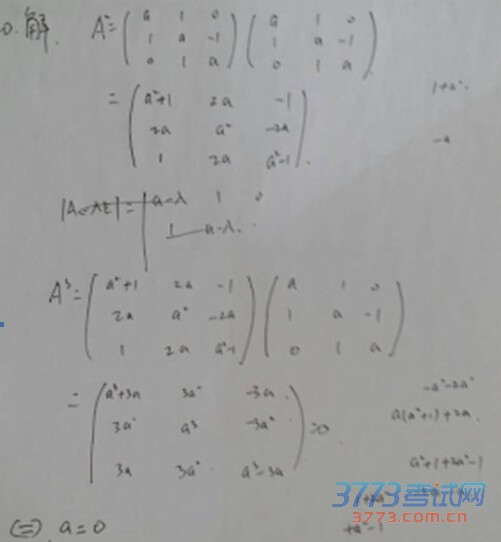 0.解. A²=(a 1 0 / 1 a -1 / 0 1 a)(a 1 0 / 1 a -1 / 0 1 a).
=(a²+1 2a -1 / 2a a² -2a / 1 2a a²-1). 1+a²
-a
|A-λE|=|a-λ 1 0
1 a-λ.
A³=(a²+1 2a -1 / 2a a² -2a / 1 2a a²-1)(a 1 0 / 1 a -1 / 0 1 a)
=(a³+3a 3a² -3a / 3a² a³ -3a² / 3a 3a² a³-3a)=0 -a²-2a²
a(a²+1)+2a.
a²+1+2a²-1
3773考试网
3773.com.cn
(二) a=0 +a²-1